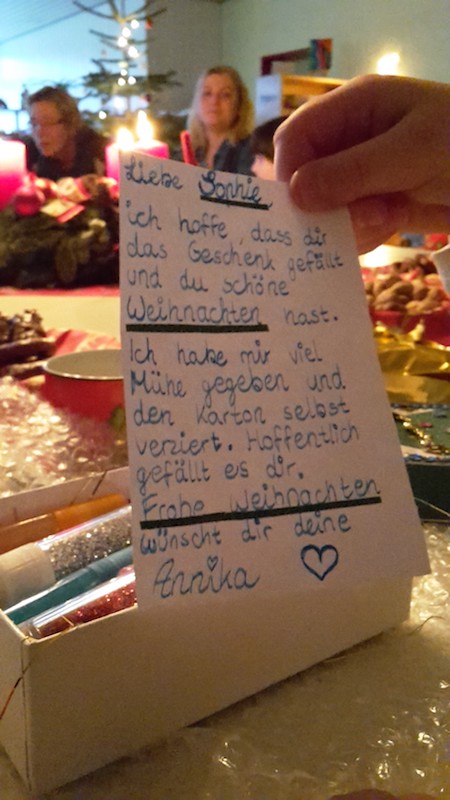 Liebe Sophie,
ich hoffe, dass dir
das Geschenk gefällt
und du schöne
Weihnachten hast.
Ich habe mir viel
Mühe gegeben und
den Karton selbst
verziert. Hoffentlich
gefällt es dir.
Frohe Weihnachten
wünscht dir deine
Annika